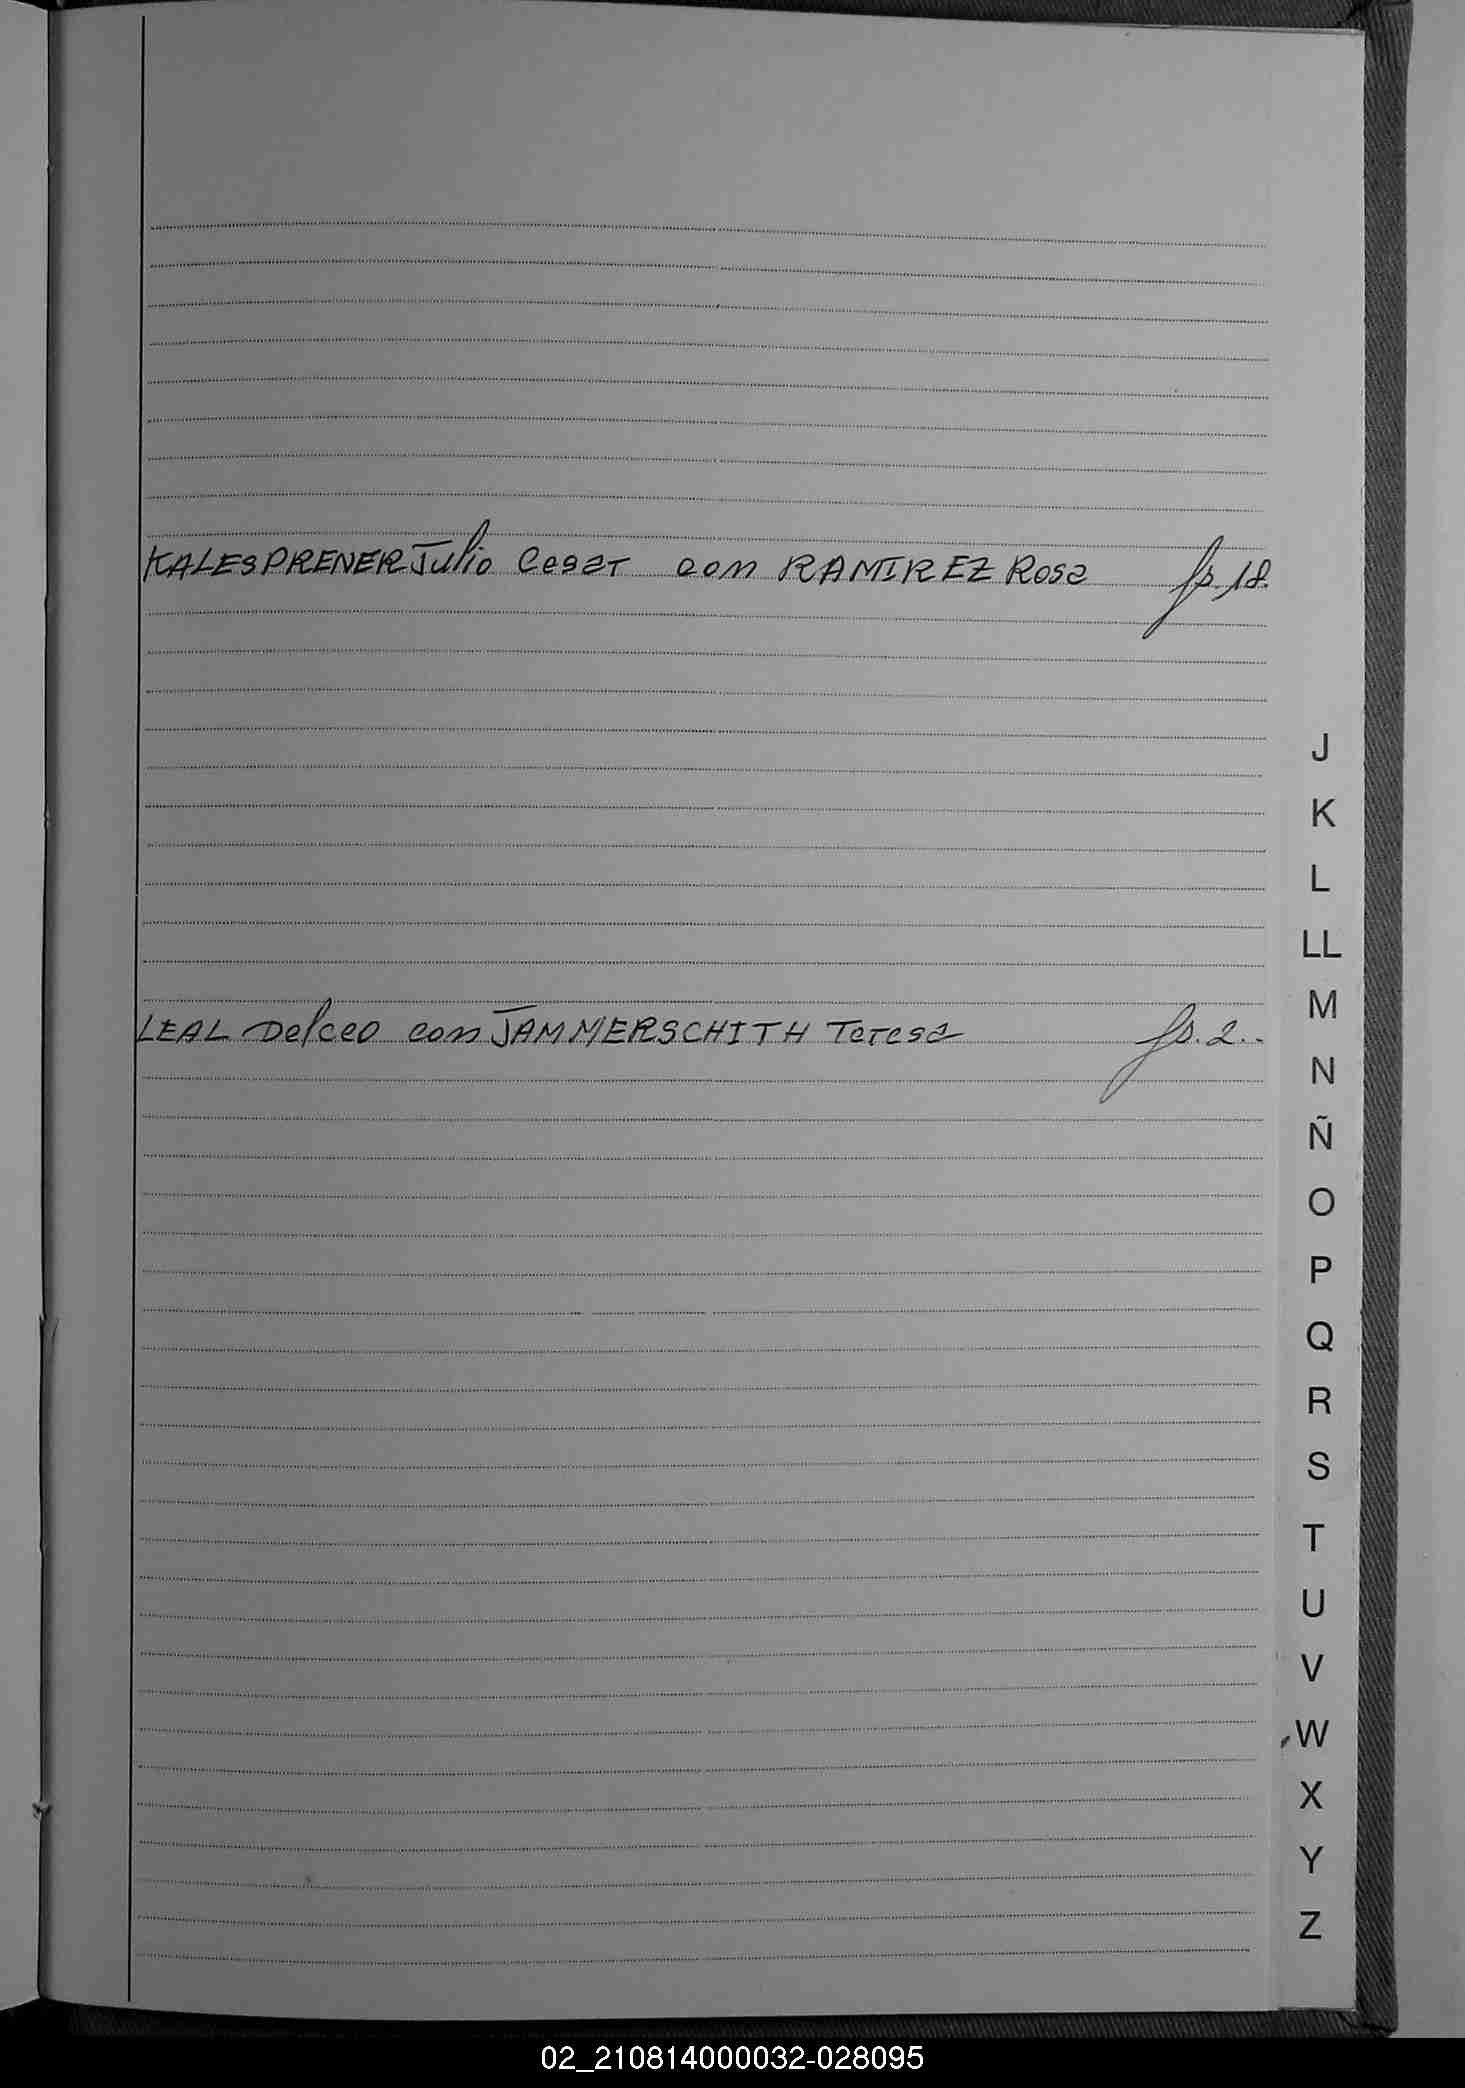 KALESPRENER Julio Cesar con RAMIREZ Rosa fs. 18.
J
K
L
LL
LEAL Delceo con JAMMERSCHITH Teresa fs. 2..
M
N
Ñ
O
P
Q
R
S
T
U
V
W
X
Y
Z
02_210814000032-028095